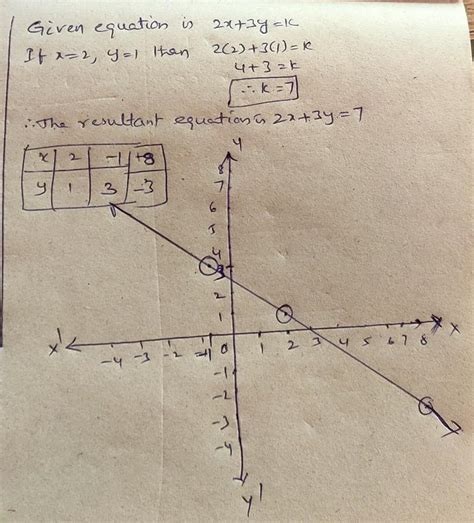 Given equation is 2x+3y=k
If x=2, y=1 then 2(2)+3(1)=k
4+3=k
∴k=7
∴The resultant equation is 2x+3y=7
x 2 -1 +8
y 1 3 -3
y
8
7
6
5
4
3
2
1
x' -4 -3 -2 -1 0 1 2 3 4 5 6 7 8 x
-1
-2
-3
-4
y'